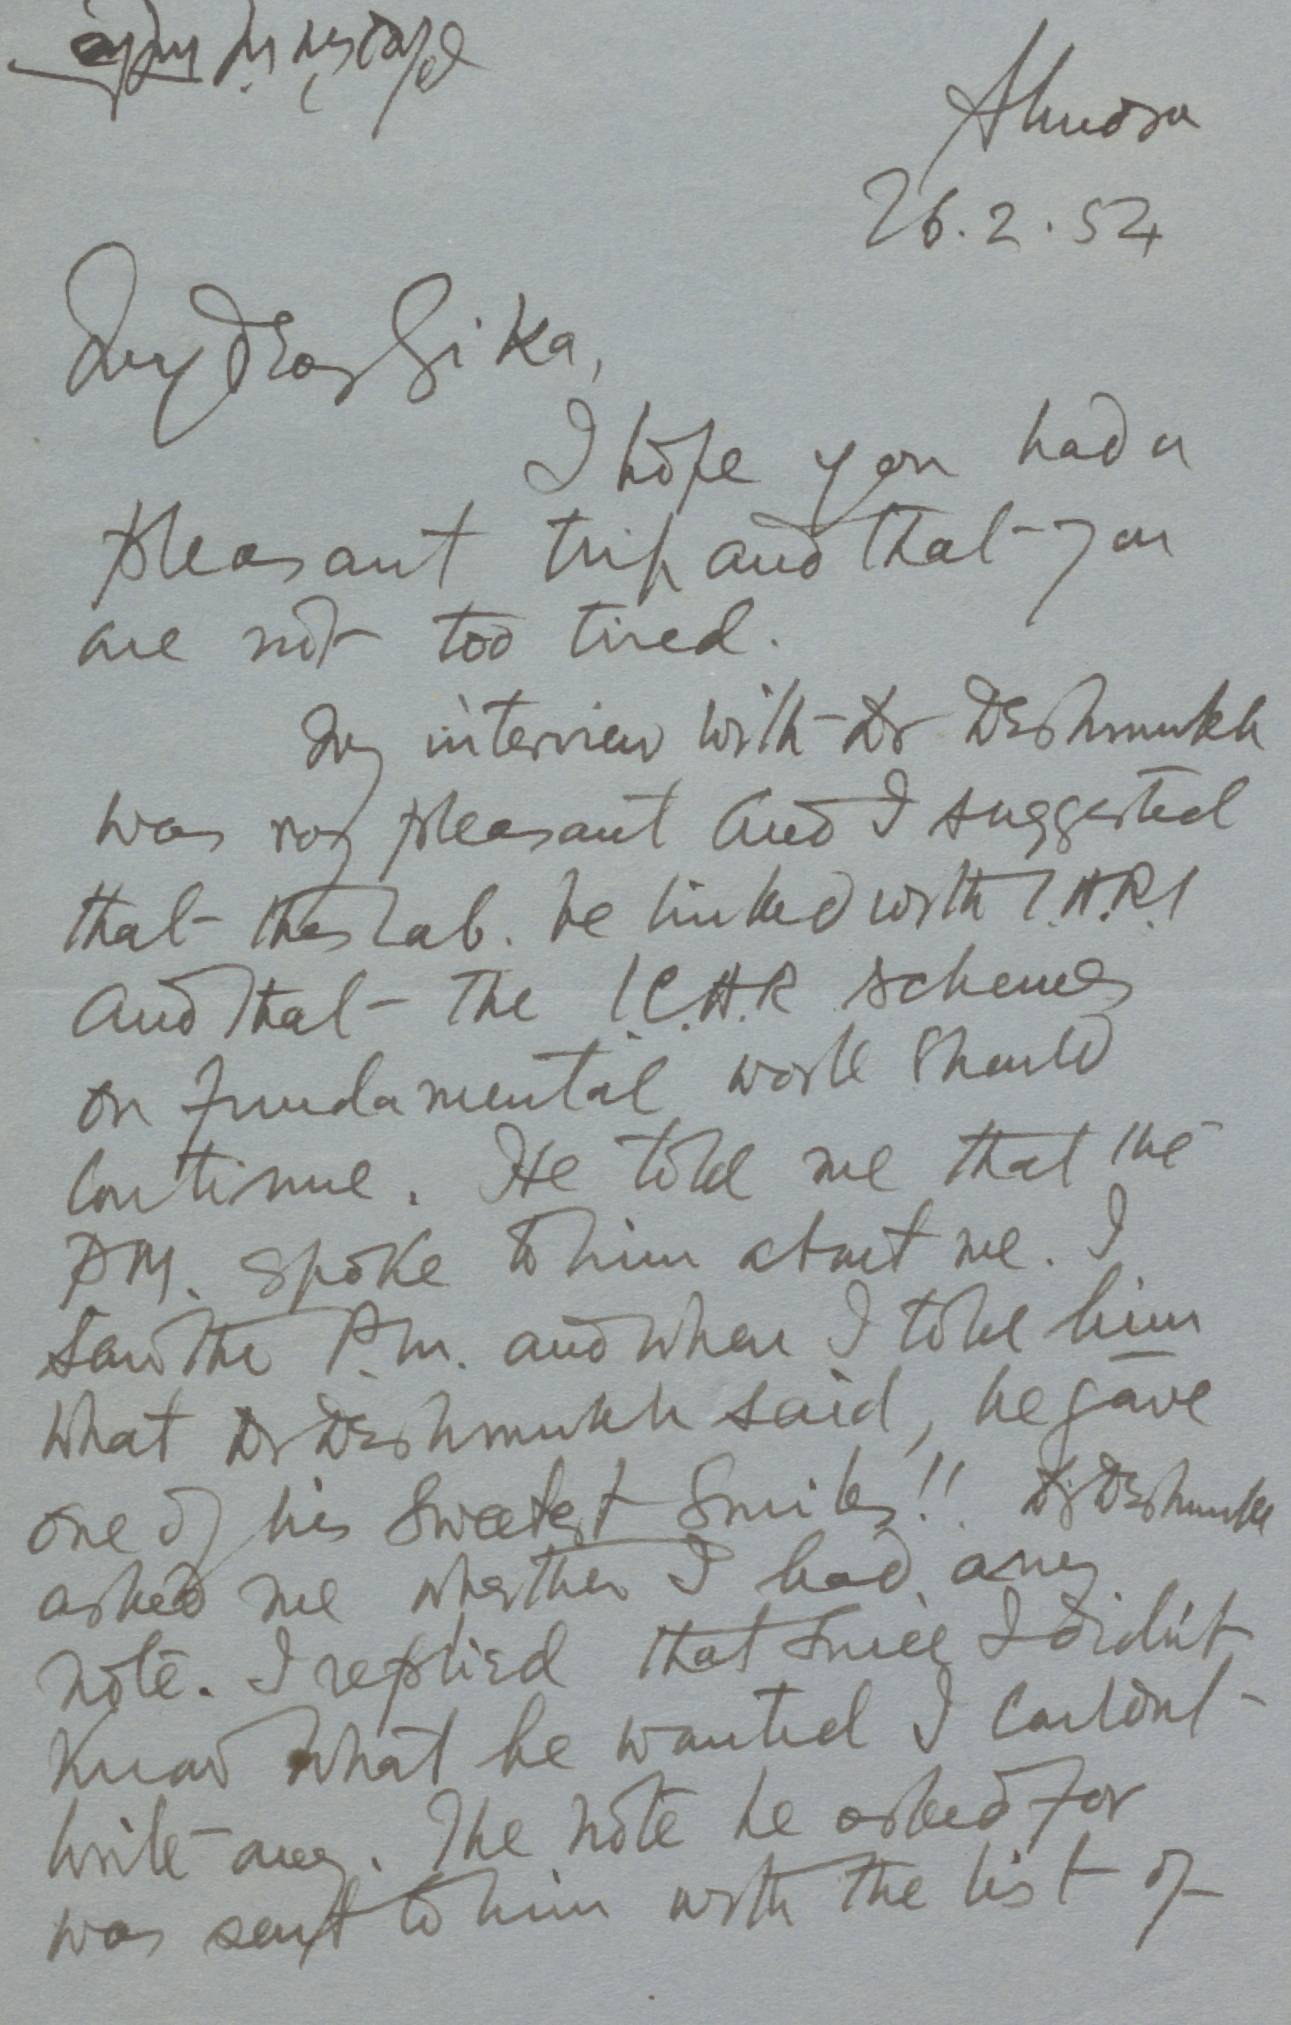 Almora
26.2.54
My dear Gika,
I hope you had a
pleasant trip and that you
are not too tired.
My interview with Dr Deshmukh
was very pleasant and I suggested
that the Lab. be linked with I.A.R.I
and that the I.C.A.R schemes
on fundamental work should
continue. He told me that the
P.M. spoke to him about me. I
saw the P.M. and when I told him
what Dr Deshmukh said, he gave
one of his sweetest smiles!! Dr Deshmukh
asked me whether I had any
note. I replied that since I didn't
know what he wanted I couldn't
write any. The note he asked for
was sent to him with the list of